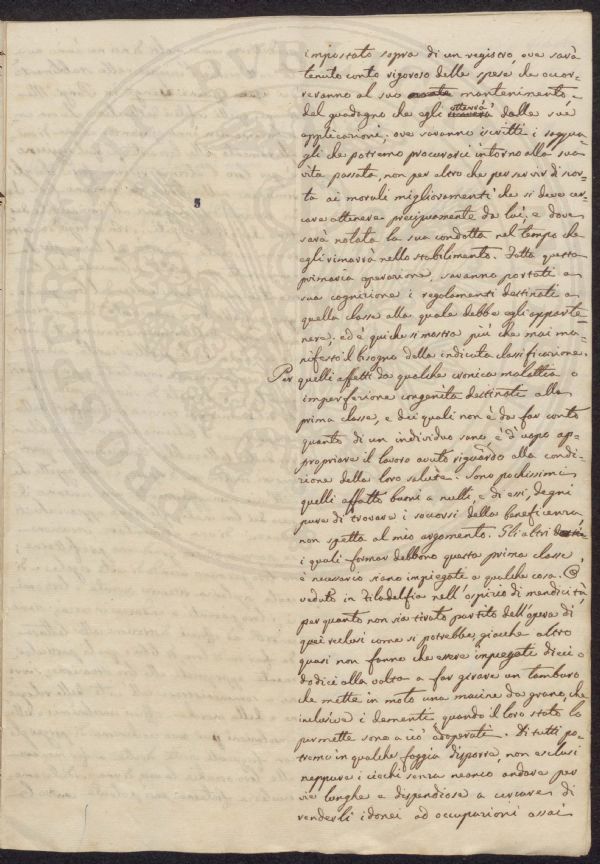 impostato sopra di un registro, ove sarà
tenuto conto rigoroso delle spese che occor-
reranno al suo mantenimento,
del guadagno che egli otterrà dalle sue
applicazioni; ove saranno iscritti i raggua-
gli che potremo procurarci intorno alla sua
vita passata, non per altro che per servir di scor-
ta ai morali miglioramenti che si deve cer-
care ottenere precipuamente da lui; e dove
sarà notata la sua condotta nel tempo che
egli rimarrà nello stabilimento. Fatta questa
primaria operazione, saranno portati a
sua cognizione i regolamenti destinati a
quella classe alla quale debbe egli apparte-
nere; ed è qui che si mostra più che mai ma-
nifesto il bisogno della indicata classificazione.
Per quelli affetti da qualche cronica malattia o
imperfezione congenita destinati alla
prima classe, e dei quali non è da far conto
quanto di un individuo sano è d'uopo ap-
propriare il lavoro avuto riguardo alla condi-
zione della loro salute. Sono pochissimi
quelli affatto buoni a nulla, e di essi, degni
pure di trovare i soccorsi della beneficenza
non spetta al mio argomento. Gli altri
i quali formar debbono questa prima classe
è necessario siano impiegati a qualche cosa. Ho
veduto in Filadelfia nell'ospizio di mendicità,
per quanto non sia tirato partito dell'opera di
quei reclusi come si potrebbe, giacchè altro
quasi non fanno che essere impiegati dieci o
dodici alla volta a far girare un tamburo
che mette in moto una macine da grano, che
inclusive i dementi, quando il loro stato lo
permette sono a ciò adoperati. Di tutti po-
tremo in qualche foggia disporre, non esclusi
neppure i ciechi senza neanco andare per
vie lunghe e dispendiose a cercare di
renderli idonei ad occupazioni assai